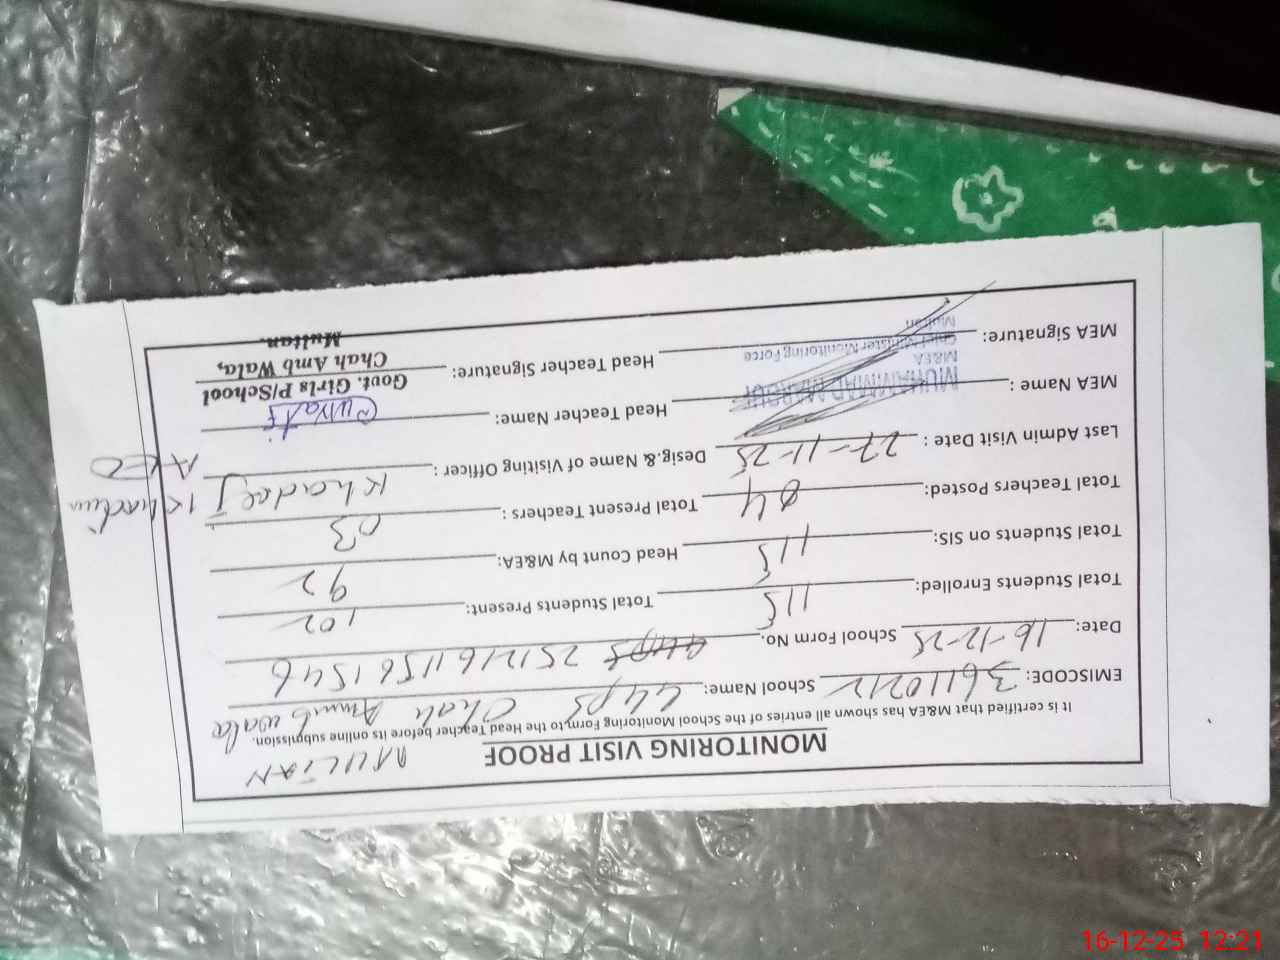 MULTAN
MONITORING VISIT PROOF
It is certified that M&EA has shown all entries of the School Monitoring Form to the Head Teacher before its online submission.
EMISCODE: 36110212 School Name: GGPS Chah Amb wala
Date: 16-12-25 School Form No. 25121611561546
Total Students Enrolled: 115 Total Students Present: 102
Total Students on SIS: 115 Head Count by M&EA: 92
Total Teachers Posted: 04 Total Present Teachers : 03
Last Admin Visit Date : 27-11-25 Desig.& Name of Visiting Officer : AEO
MEA Name : MUHAMMAD Head Teacher Name:
M&EA
Chief Minister Monitoring Force
Multan
MEA Signature: Head Teacher Signature:
Govt. Girls P/School
Chah Amb Wala,
Multan.
16-12-25 12:21